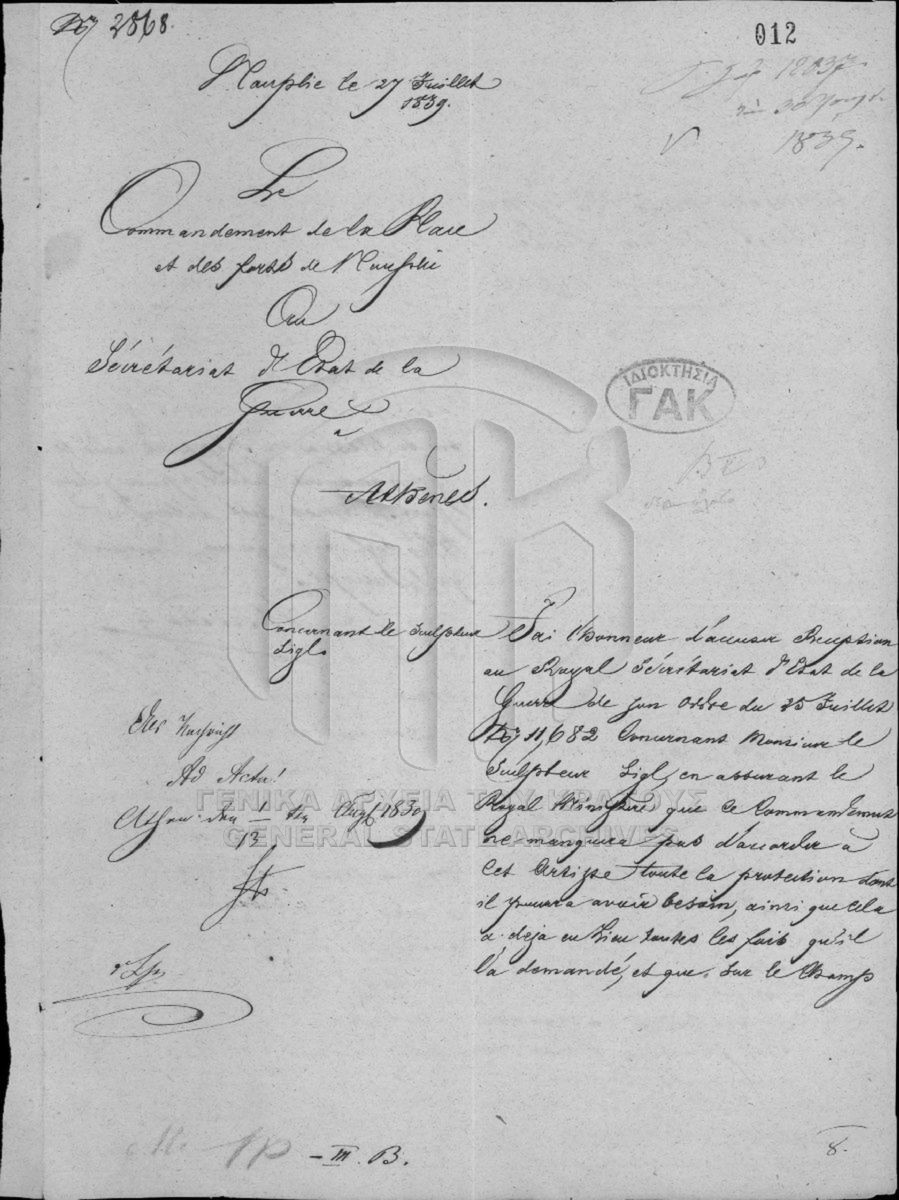 2868.
012
Nauplie le 27 Juillet
1839.
12037
30
1839.
Le
Commandement de la Place
et des forts de Nauplie
Au
Sécrétariat d'Etat de la
Guerre
Athènes.
ΙΔΙΟΚΤΗΣΙΑ
ΓΑΚ
Concernant le sculpteur
Sigl.
J'ai l'honneur d'accuser Reception
au Royal Sécrétariat d'Etat de la
Guerre de son Ordre du 25 Juillet
11,682 Concernant Monsieur le
Sculpteur Sigl, en assurant le
Royal Ministère que ce Commandement
ne manquera pas d'accorder à
cet Artiste toute la protection dont
il pourra avoir besoin, ainsi que cela
a deja eu lieu toutes les fois qu'il
l'a demandé, et que sur le Champ
Ad Acta!
Athen den 1 ten Aug 1839
13
ΓΕΝΙΚΑ ΑΡΧΕΙΑ ΤΟΥ ΚΡΑΤΟΥΣ
GENERAL STATE ARCHIVES
– III. B.
8.